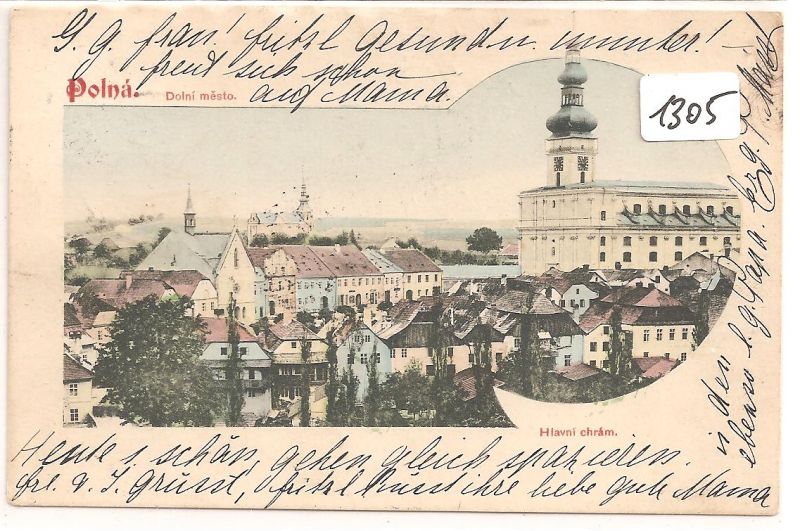 G. g. frau! fritzl Gesund u. munter! –
freut sich schon
auf Mama.
Polná.
Dolní město.
1305
Hlavní chrám.
Heute s. schön, gehen gleich spazieren
frl. v. J. grüsst, fritzl küsst ihre liebe gute Mama
in den
ebenso l. g. Papa.